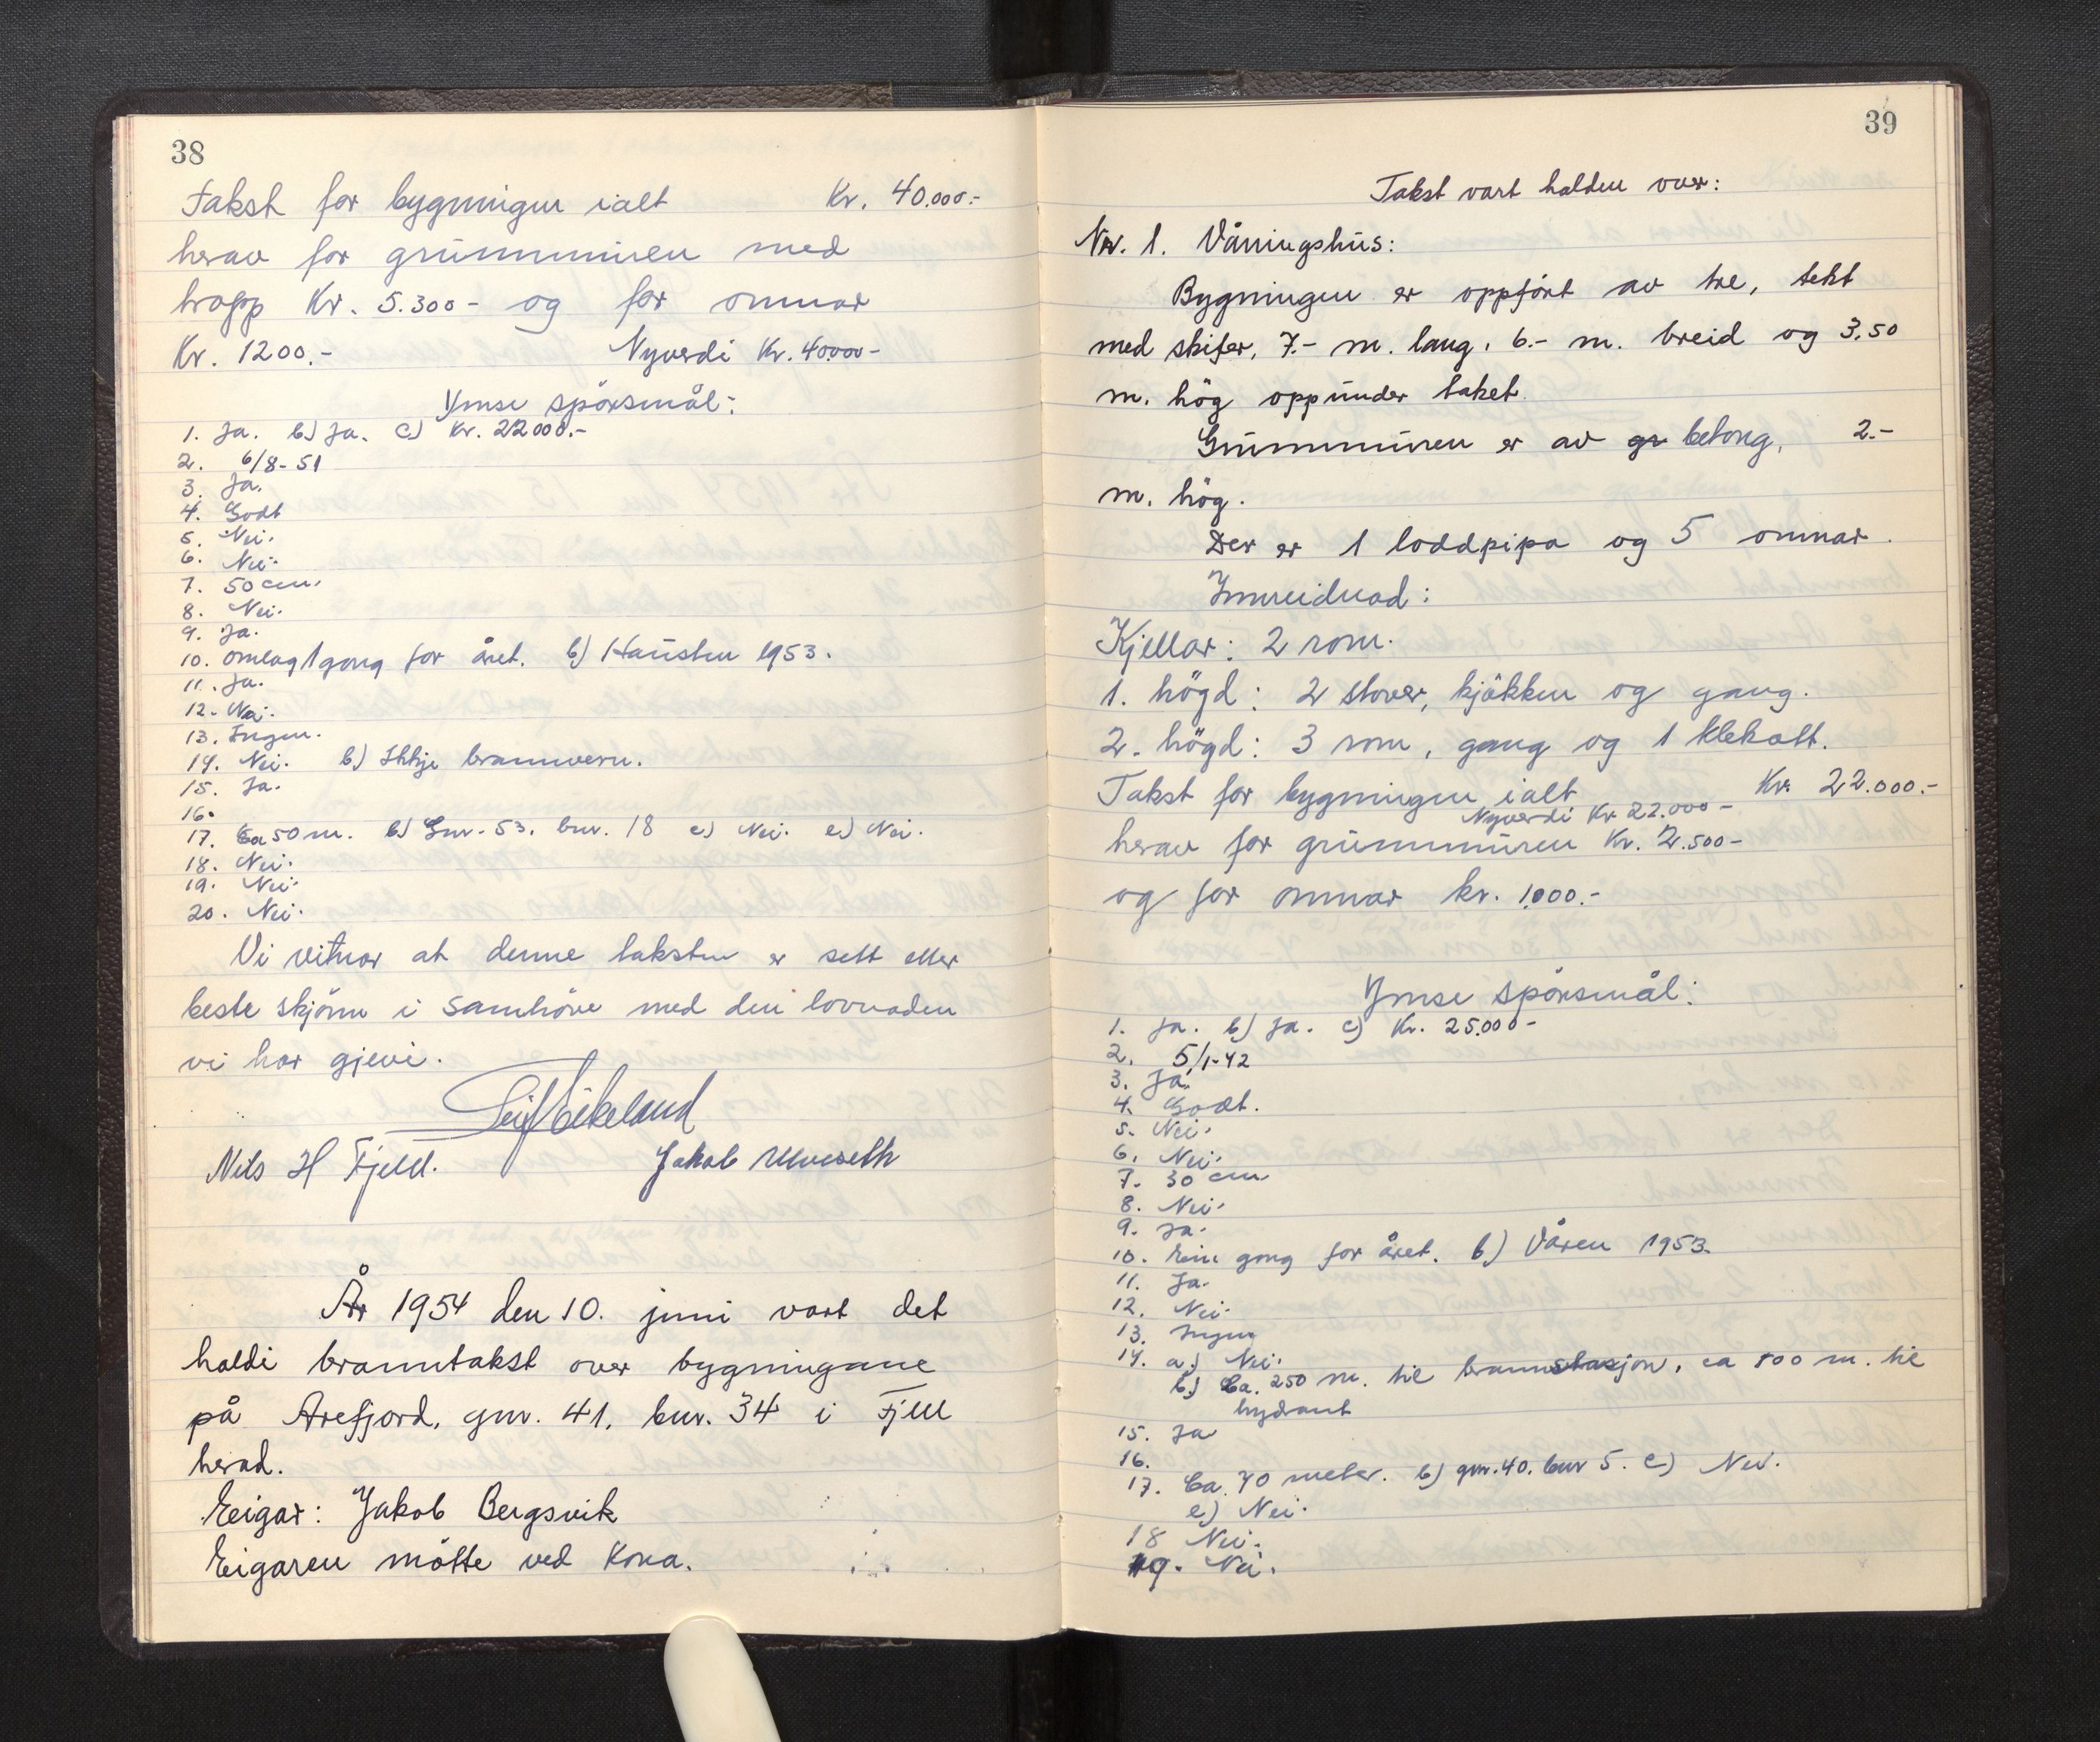 38
Takst for bygningen ialt Kr. 40.000.-
herav for grunnmuren med
trapp Kr. 5.300- og for omnar
Kr. 1200.- Nyverdi Kr. 40000-
Ymse spörsmål:
1. Ja. b) Ja. c) Kr. 22000.-
2. 6/8-51
3. Ja.
4. Godt
5. Nei.
6. Nei.
7. 50 cm.
8. Nei.
9. Ja.
10. Omlag 1 gong for året. b) Hausten 1953.
11. Ja.
12. Nei.
13. Ingen.
14. Nei. b) Ikkje brannvern.
15. Ja.
16.
17. Ca 50 m. b) Gnr. 53. bnr. 18 c) Nei. e) Nei.
18. Nei.
19. Nei.
20. Nei.
Vi vitnar at denne taksten er sett etter
beste skjönn i samhöve med den lovnaden
vi har gjevi.
Leif Eikeland
Nils H Fjell. Jakob Ulveseth
År 1954 den 10. juni vart det
haldi branntakst over bygningane
på Arefjord, gnr. 41, bnr. 34 i Fjell
herad.
Eigar: Jakob Bergsvik
Eigaren mötte ved Kona.
39
Takst vart halden over:
Nr. 1. Våningshus:
Bygningen er oppfört av tre, tekt
med skifer, 7.- m. lang, 6.- m. breid og 3,50
m. hög oppunder taket.
Grunnmuren er av gr betong, 2.-
m. hög.
Der er 1 loddpipa og 5 omnar.
Innreidnad:
Kjellar: 2 rom.
1. högd: 2 stover, kjökken og gang.
2. högd: 3 rom, gang og 1 klekott.
Takst for bygningen ialt Kr. 22.000.-
Nyverdi Kr 22.000-
herav for grunnmuren Kr. 2.500-
og for omnar kr. 1000.-
Ymse spörsmål:
1. Ja. b) Ja. c) Kr. 25.000-
2. 5/1-42
3. Ja.
4. Godt.
5. Nei.
6. Nei.
7. 30 cm
8. Nei.
9. Ja.
10. Ein gong for året. b) Våren 1953.
11. Ja.
12. Nei.
13. Ingen
14. a.) Nei.
b.) Ca. 250 m. til brannstasjon, ca 100 m. til
hydrant
15. Ja
16.
17. Ca. 70 meter. b) gnr. 40. bnr 5. c) Nei.
e) Nei.
18 Nei.
19. Nei.